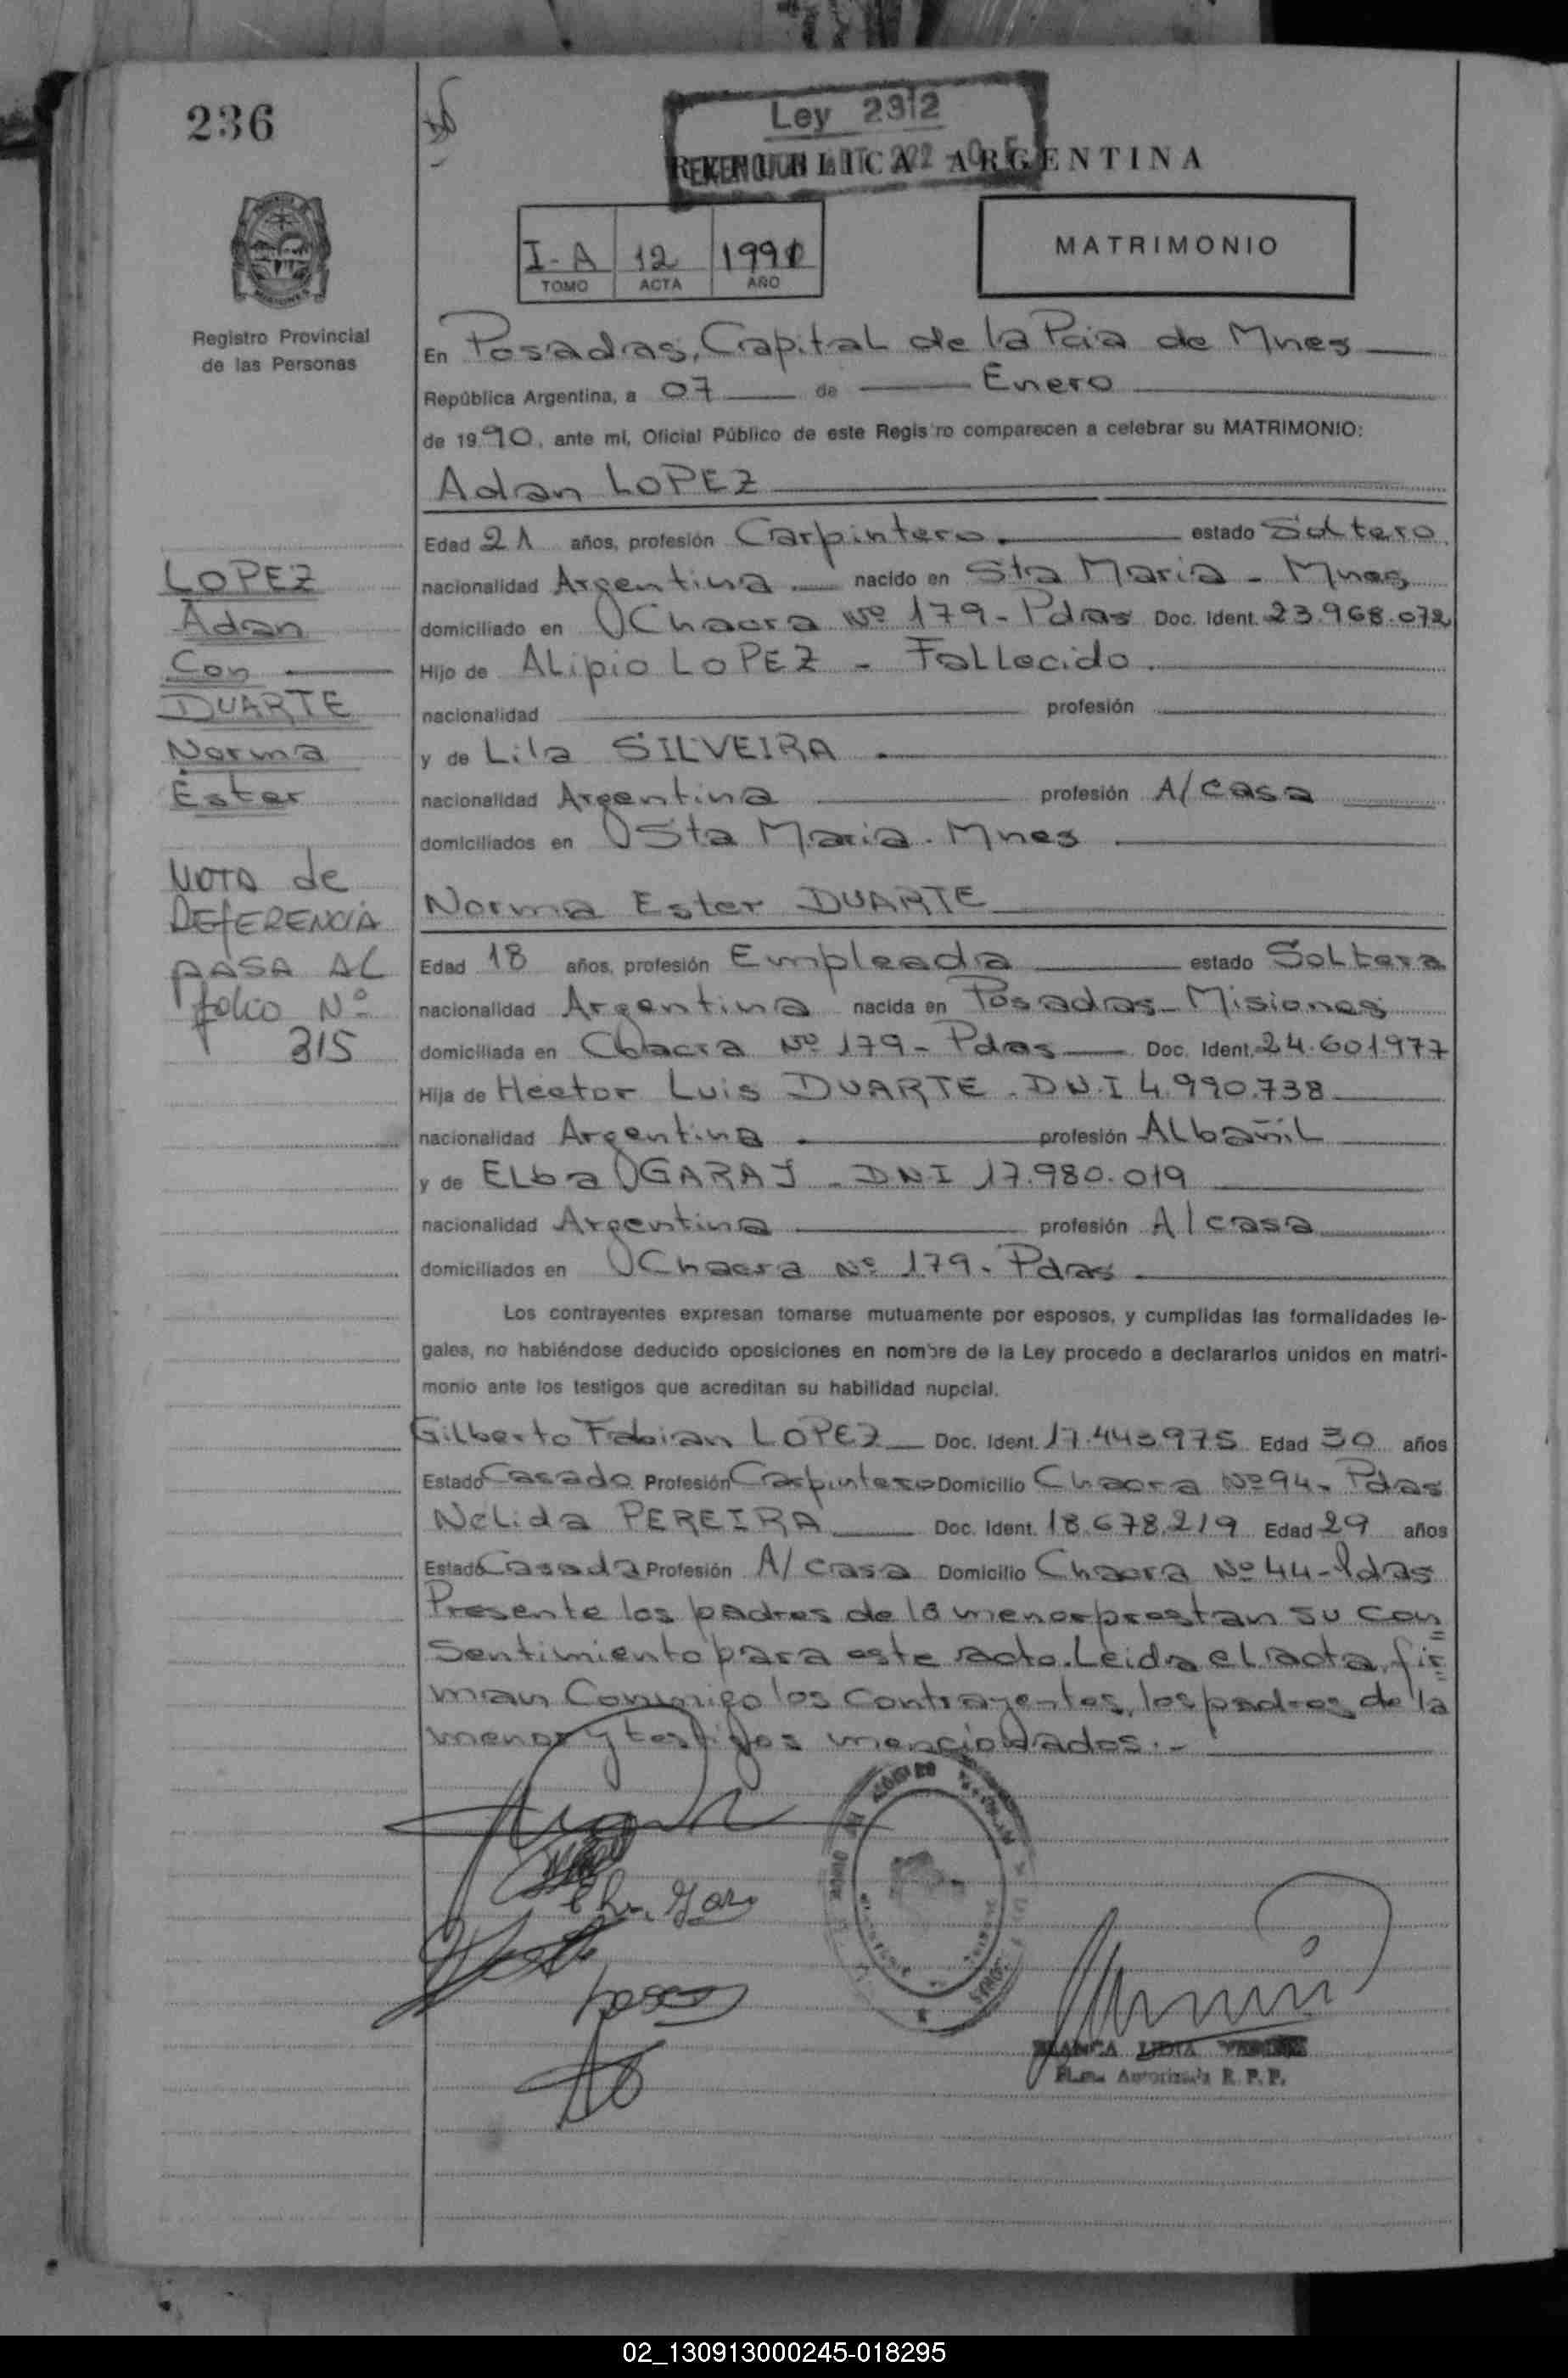 236
Ley 2312
REPUBLICA ARGENTINA
I-A 12 1990
TOMO ACTA AÑO
MATRIMONIO
MISIONES
Registro Provincial
de las Personas
En Posadas, Capital de la Pcia de Mnes
República Argentina, a 07 de Enero
de 1990, ante mi, Oficial Público de este Registro comparecen a celebrar su MATRIMONIO:
Adan LOPEZ
Edad 21 años, profesión Carpintero. estado Soltero
nacionalidad Argentina nacido en Sta Maria - Mnes
domiciliado en Chacra Nº 179 - Pdas Doc. Ident. 23.968.072
Hijo de ALipio LOPEZ - Fallecido.
nacionalidad profesión
y de Lila SILVEIRA.
nacionalidad Argentina profesión A/casa
domiciliados en Sta Maria - Mnes
LOPEZ
Adan
Con
DUARTE
Norma
Ester
NOTA de
REfERENCIA
PASA AL
folio Nº
315
Norma Ester DUARTE
Edad 18 años, profesión Empleada estado Soltera
nacionalidad Argentina nacida en Posadas - Misiones
domiciliada en Chacra Nº 179 - Pdas Doc. Ident. 24.601.977
Hija de Hector Luis DUARTE - D.N.I 4.990.738
nacionalidad Argentina profesión ALbañiL
y de ELba GARAY - DNI 17.980.019
nacionalidad Argentina profesión A/casa
domiciliados en Chacra Nº 179 - Pdas
Los contrayentes expresan tomarse mutuamente por esposos, y cumplidas las formalidades le-
gales, no habiéndose deducido oposiciones en nombre de la Ley procedo a declararlos unidos en matri-
monio ante los testigos que acreditan su habilidad nupcial.
Gilberto Fabian LOPEZ Doc. Ident. 17.443.975 Edad 30 años
Estado Casado Profesión Carpintero Domicilio Chacra Nº 94 - Pdas
Nelida PEREIRA Doc. Ident. 18.678.219 Edad 29 años
Estado Casada Profesión A/casa Domicilio Chacra Nº 44 - Pdas
Presente los padres de la menor prestan su con
sentimiento para este acto. Leida el acta, fir
man Conmigo los Contrayentes, los padres de la
menor y testigos mencionados.-
BLANCA LIDIA
Firma Autorizada R. P. P.
02_130913000245-018295